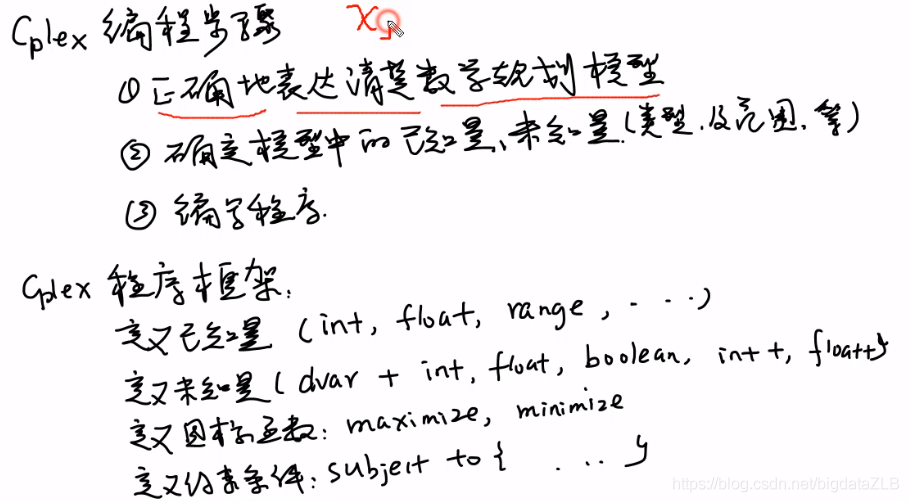 Cplex 编程步骤 x
① 正确地表达清楚数学规划模型
② 确定模型中的已知量、未知量(类型、及范围、等)
③ 编写程序.
Cplex 程序框架:
定义已知量 (int, float, range, ...)
定义未知量 (dvar + int, float, boolean, int+, float+)
定义目标函数: maximize, minimize
定义约束条件: subject to { ... }
https://blog.csdn.net/bigdataZLB